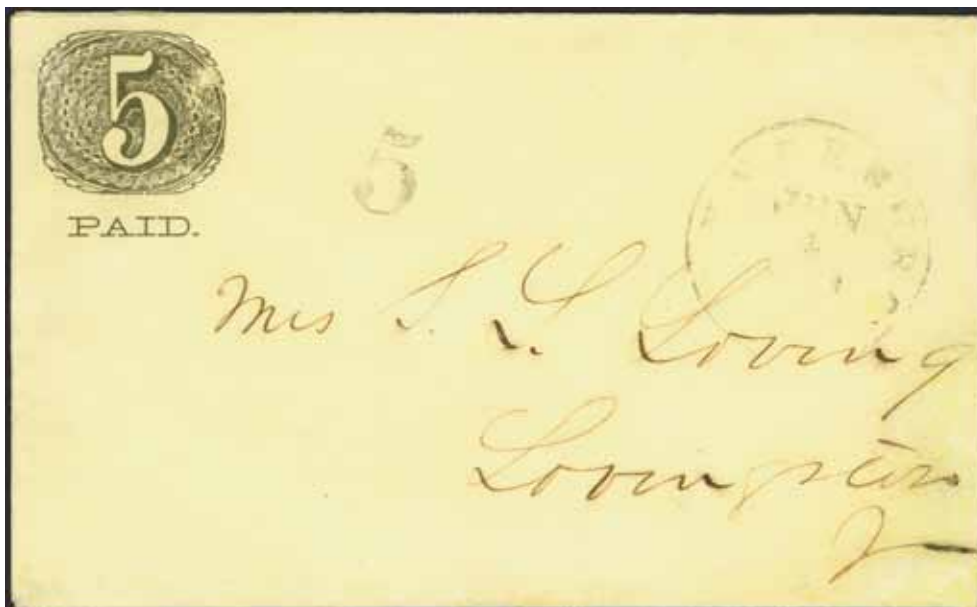 5
PAID.
5
Mrs S. L. Loving
Lovingston